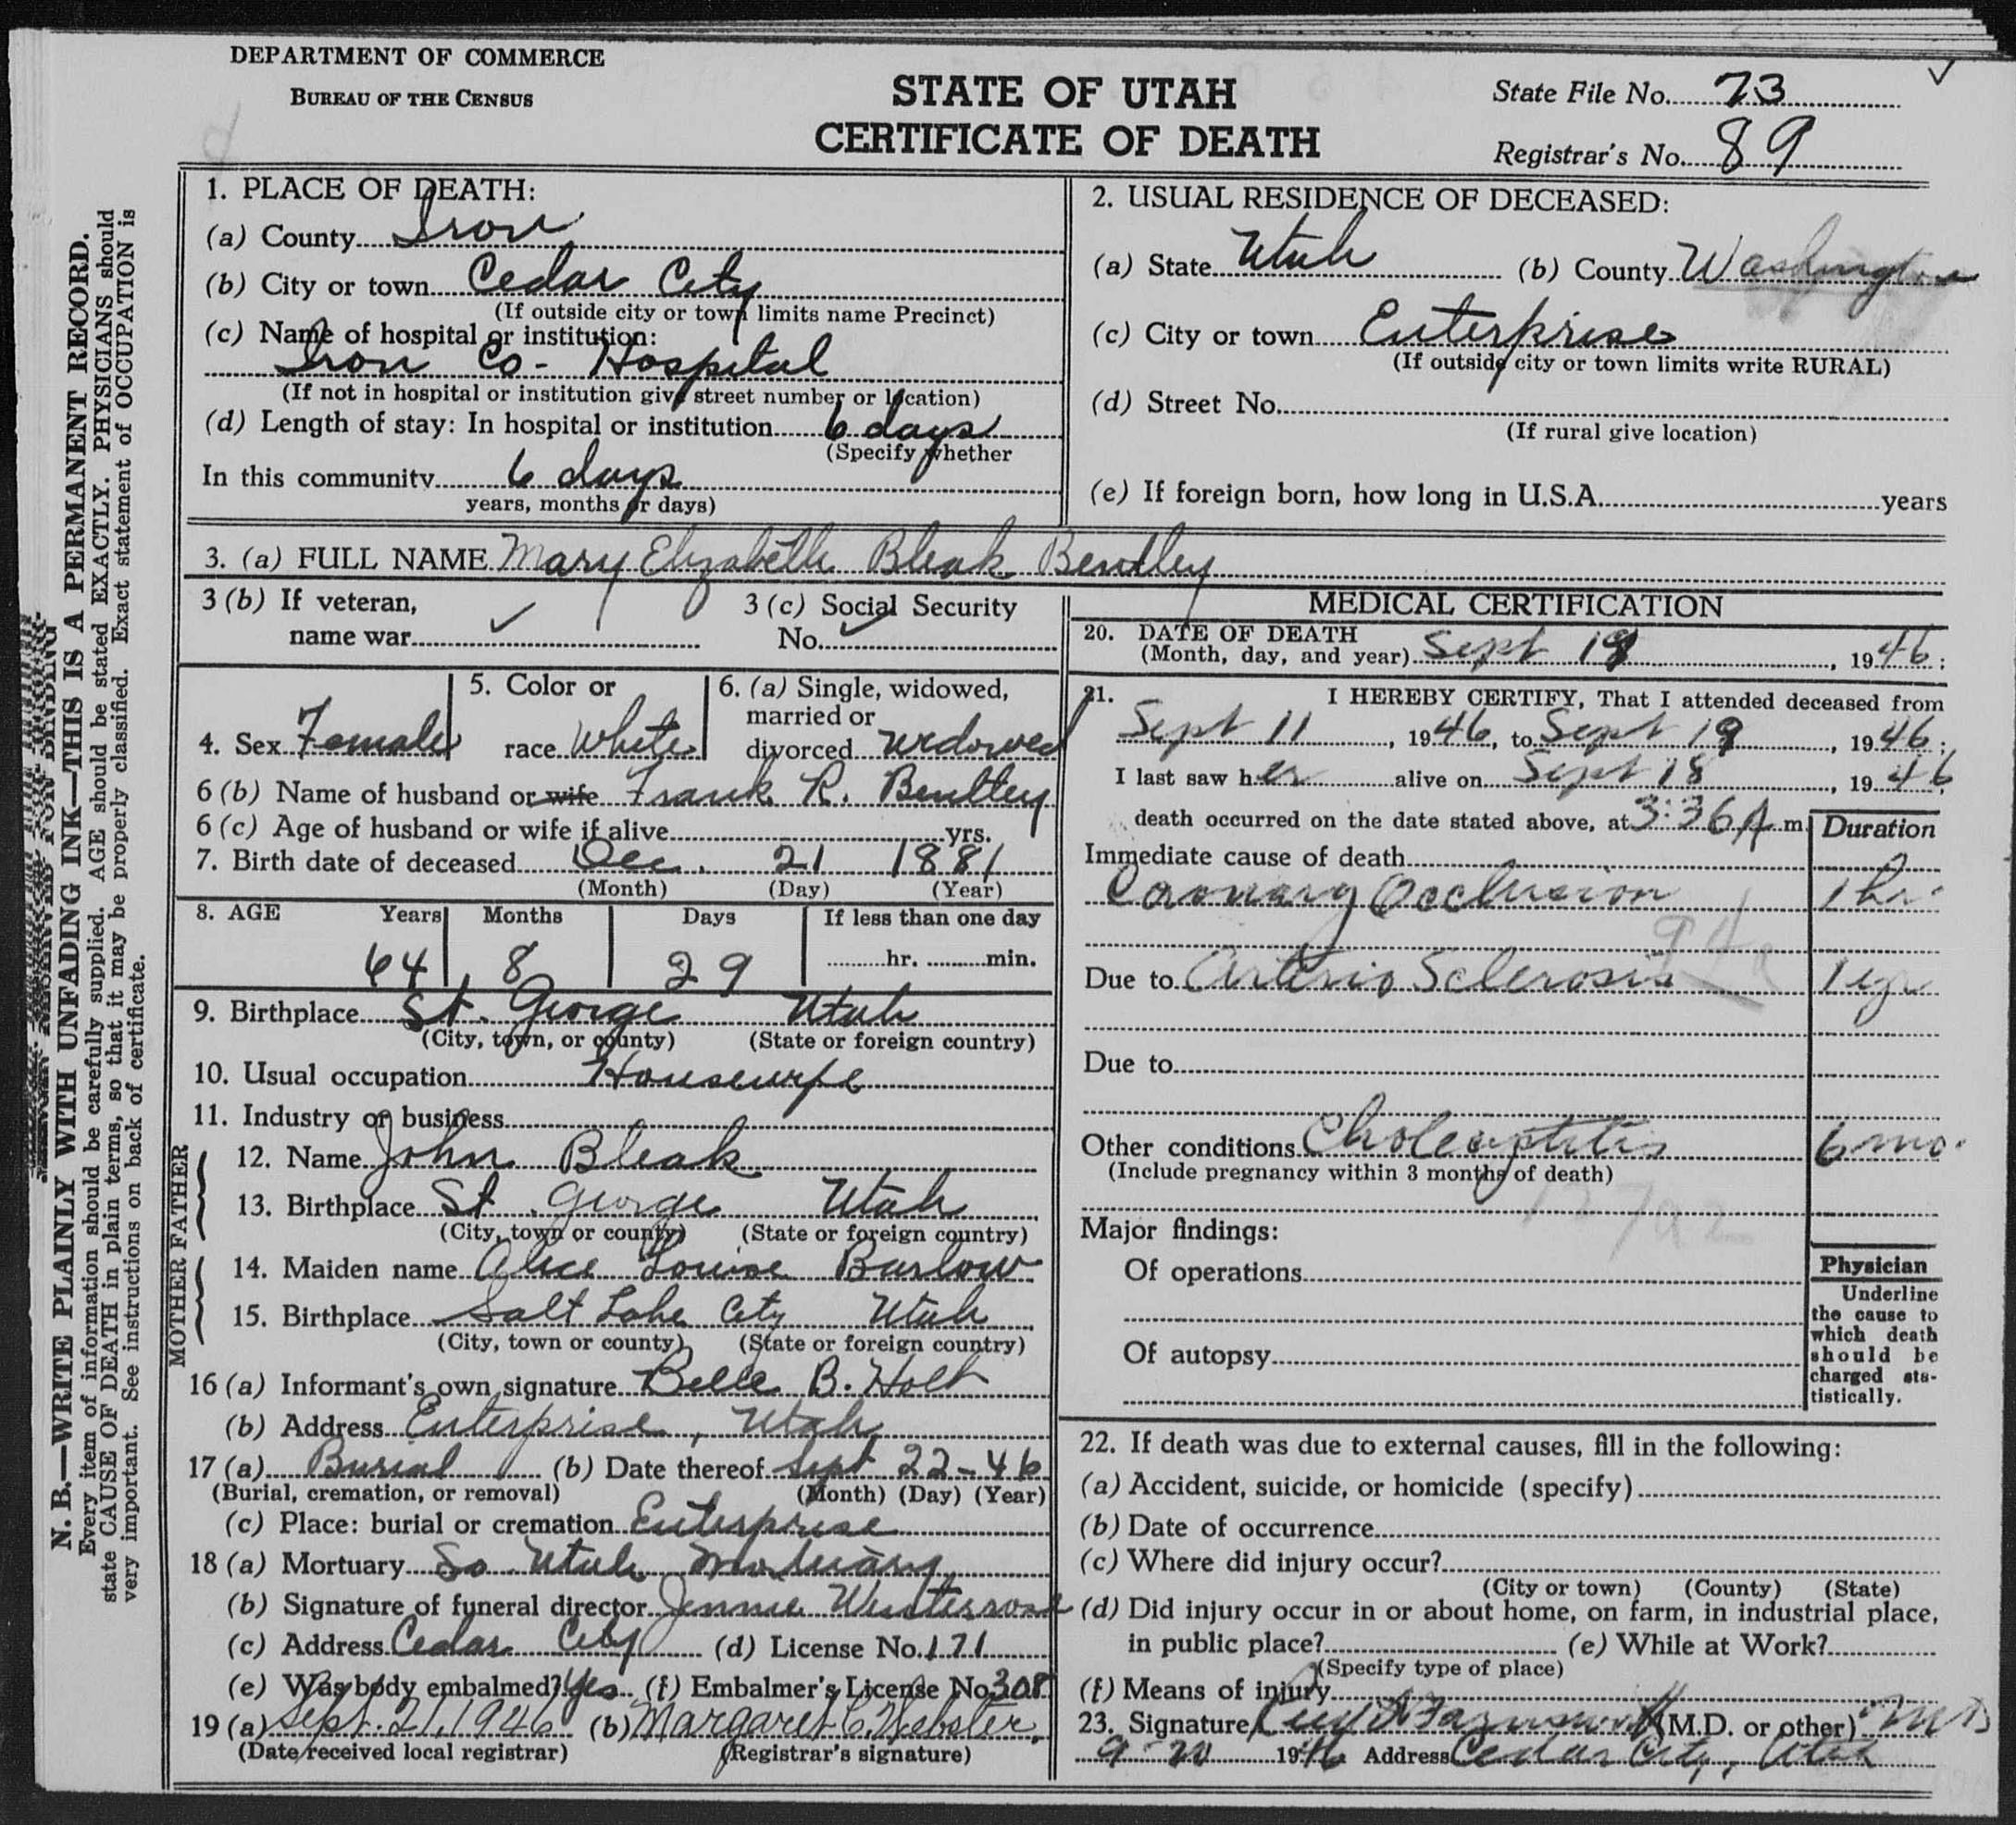 DEPARTMENT OF COMMERCE
BUREAU OF THE CENSUS
STATE OF UTAH
CERTIFICATE OF DEATH
State File No. 73
Registrar's No. 89
N. B.—WRITE PLAINLY WITH UNFADING INK—THIS IS A PERMANENT RECORD.
Every item of information should be carefully supplied. AGE should be stated EXACTLY. PHYSICIANS should
state CAUSE OF DEATH in plain terms, so that it may be properly classified. Exact statement of OCCUPATION is
very important. See instructions on back of certificate.
1. PLACE OF DEATH:
(a) County Iron
(b) City or town Cedar City
(If outside city or town limits name Precinct)
(c) Name of hospital or institution:
Iron Co- Hospital
(If not in hospital or institution give street number or location)
(d) Length of stay: In hospital or institution 6 days
(Specify whether
In this community 6 days
years, months or days)
2. USUAL RESIDENCE OF DECEASED:
(a) State Utah (b) County Washington
(c) City or town Enterprise
(If outside city or town limits write RURAL)
(d) Street No.
(If rural give location)
(e) If foreign born, how long in U.S.A. years
3. (a) FULL NAME Mary Elizabeth Bleak Bentley
3 (b) If veteran,
name war ✓
3 (c) Social Security
No. ✓
4. Sex Female
5. Color or
race White
6. (a) Single, widowed,
married or
divorced Widowed
6 (b) Name of husband or wife Frank R. Bentley
6 (c) Age of husband or wife if alive yrs.
7. Birth date of deceased Dec. 21 1881
(Month) (Day) (Year)
8. AGE Years Months Days If less than one day
64 8 29 hr. min.
9. Birthplace St. George Utah
(City, town, or county) (State or foreign country)
10. Usual occupation Housewife
11. Industry or business
FATHER
12. Name John Bleak
13. Birthplace St. George Utah
(City, town or county) (State or foreign country)
MOTHER
14. Maiden name Alice Louise Barlow
15. Birthplace Salt Lake City Utah
(City, town or county) (State or foreign country)
16 (a) Informant's own signature Belle B. Holt
(b) Address Enterprise, Utah
17 (a) Burial (b) Date thereof Sept 22-46
(Burial, cremation, or removal) (Month) (Day) (Year)
(c) Place: burial or cremation Enterprise
18 (a) Mortuary So. Utah Mortuary
(b) Signature of funeral director Jennie Winterrose
(c) Address Cedar City (d) License No. 171
(e) Was body embalmed? Yes (f) Embalmer's License No. 308
19 (a) Sept. 21, 1946 (b) Margaret C. Webster
(Date received local registrar) (Registrar's signature)
MEDICAL CERTIFICATION
20. DATE OF DEATH
(Month, day, and year) Sept 19, 1946;
21. I HEREBY CERTIFY, That I attended deceased from
Sept 11, 1946, to Sept 19, 1946;
I last saw her alive on Sept 18, 1946
death occurred on the date stated above, at 3:36 A m. Duration
Immediate cause of death
Coronary Occlusion 1 hr.
94a
Due to Arterio Sclerosis 1 yr
Due to
Other conditions 6 mo.
(Include pregnancy within 3 months of death)
Major findings:
Of operations
Of autopsy
Physician
Underline
the cause to
which death
should be
charged sta-
tistically.
22. If death was due to external causes, fill in the following:
(a) Accident, suicide, or homicide (specify)
(b) Date of occurrence
(c) Where did injury occur?
(City or town) (County) (State)
(d) Did injury occur in or about home, on farm, in industrial place,
in public place? (e) While at Work?
(Specify type of place)
(f) Means of injury
23. Signature (M.D. or other) MD
9-20 1946 Address Cedar City, Utah